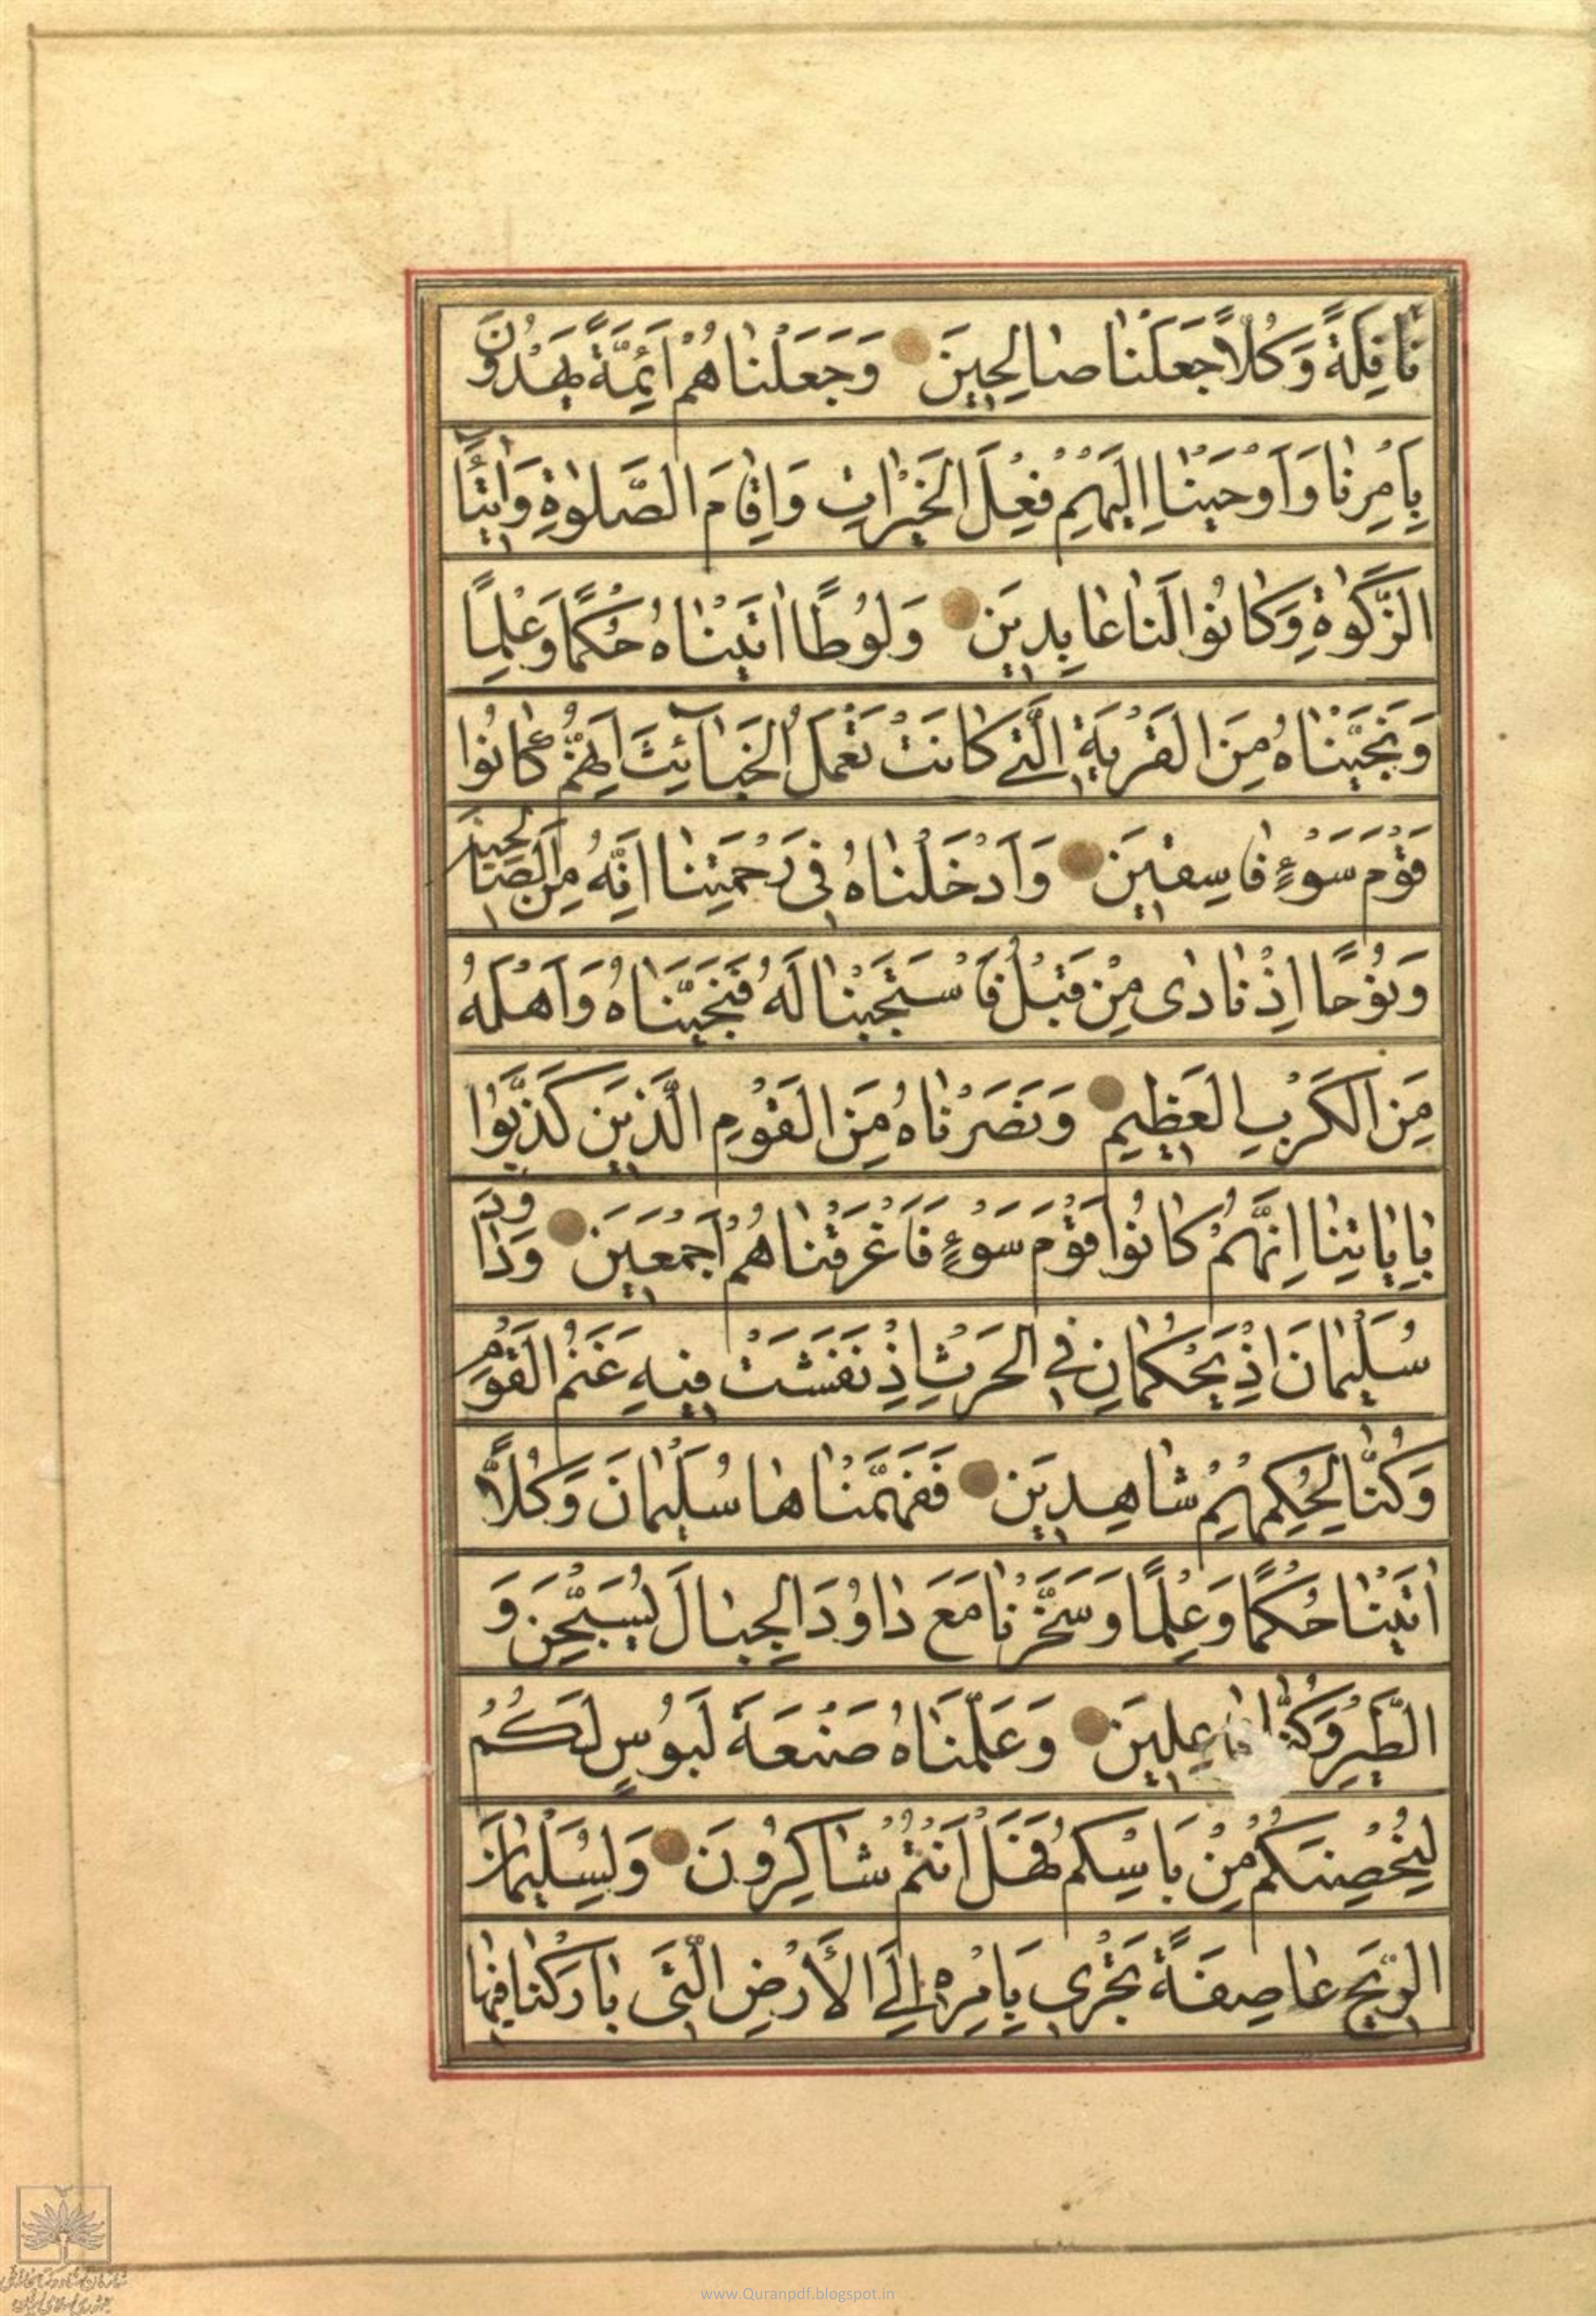 نَافِلَةً وَكُلًّا جَعَلْنَا صَالِحِينَ وَجَعَلْنَاهُمْ أَئِمَّةً يَهْدُونَ
بِأَمْرِنَا وَأَوْحَيْنَا إِلَيْهِمْ فِعْلَ الْخَيْرَاتِ وَإِقَامَ الصَّلٰوةِ وَإِيتَآءَ
الزَّكٰوةِ وَكَانُوا لَنَا عَابِدِينَ وَلُوطًا اٰتَيْنَاهُ حُكْمًا وَعِلْمًا
وَنَجَّيْنَاهُ مِنَ الْقَرْيَةِ الَّتِي كَانَتْ تَعْمَلُ الْخَبَآئِثَ إِنَّهُمْ كَانُوا
قَوْمَ سَوْءٍ فَاسِقِينَ وَأَدْخَلْنَاهُ فِي رَحْمَتِنَا إِنَّهُ مِنَ الصَّالِحِينَ
وَنُوحًا إِذْ نَادٰى مِنْ قَبْلُ فَاسْتَجَبْنَا لَهُ فَنَجَّيْنَاهُ وَأَهْلَهُ
مِنَ الْكَرْبِ الْعَظِيمِ وَنَصَرْنَاهُ مِنَ الْقَوْمِ الَّذِينَ كَذَّبُوا
بِاٰيَاتِنَا إِنَّهُمْ كَانُوا قَوْمَ سَوْءٍ فَأَغْرَقْنَاهُمْ أَجْمَعِينَ وَدَاوُدَ
سُلَيْمَانَ إِذْ يَحْكُمَانِ فِي الْحَرْثِ إِذْ نَفَشَتْ فِيهِ غَنَمُ الْقَوْمِ
وَكُنَّا لِحُكْمِهِمْ شَاهِدِينَ فَفَهَّمْنَاهَا سُلَيْمَانَ وَكُلًّا
اٰتَيْنَا حُكْمًا وَعِلْمًا وَسَخَّرْنَا مَعَ دَاوُدَ الْجِبَالَ يُسَبِّحْنَ وَ
الطَّيْرَ وَكُنَّا فَاعِلِينَ وَعَلَّمْنَاهُ صَنْعَةَ لَبُوسٍ لَكُمْ
لِتُحْصِنَكُمْ مِنْ بَأْسِكُمْ فَهَلْ أَنْتُمْ شَاكِرُونَ وَلِسُلَيْمَانَ
الرِّيحَ عَاصِفَةً تَجْرِي بِأَمْرِهِ إِلَى الْأَرْضِ الَّتِي بَارَكْنَا فِيهَا
www.Quranpdf.blogspot.in